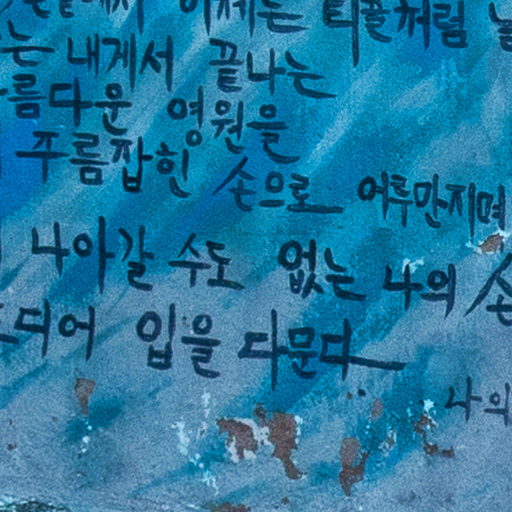 이제는 티끌처럼
는 내게서 끝나는
름다운 영원을
주름잡힌 손으로 어루만지며
나아갈 수도 없는 나의 손
드디어 입을 다문다
나의